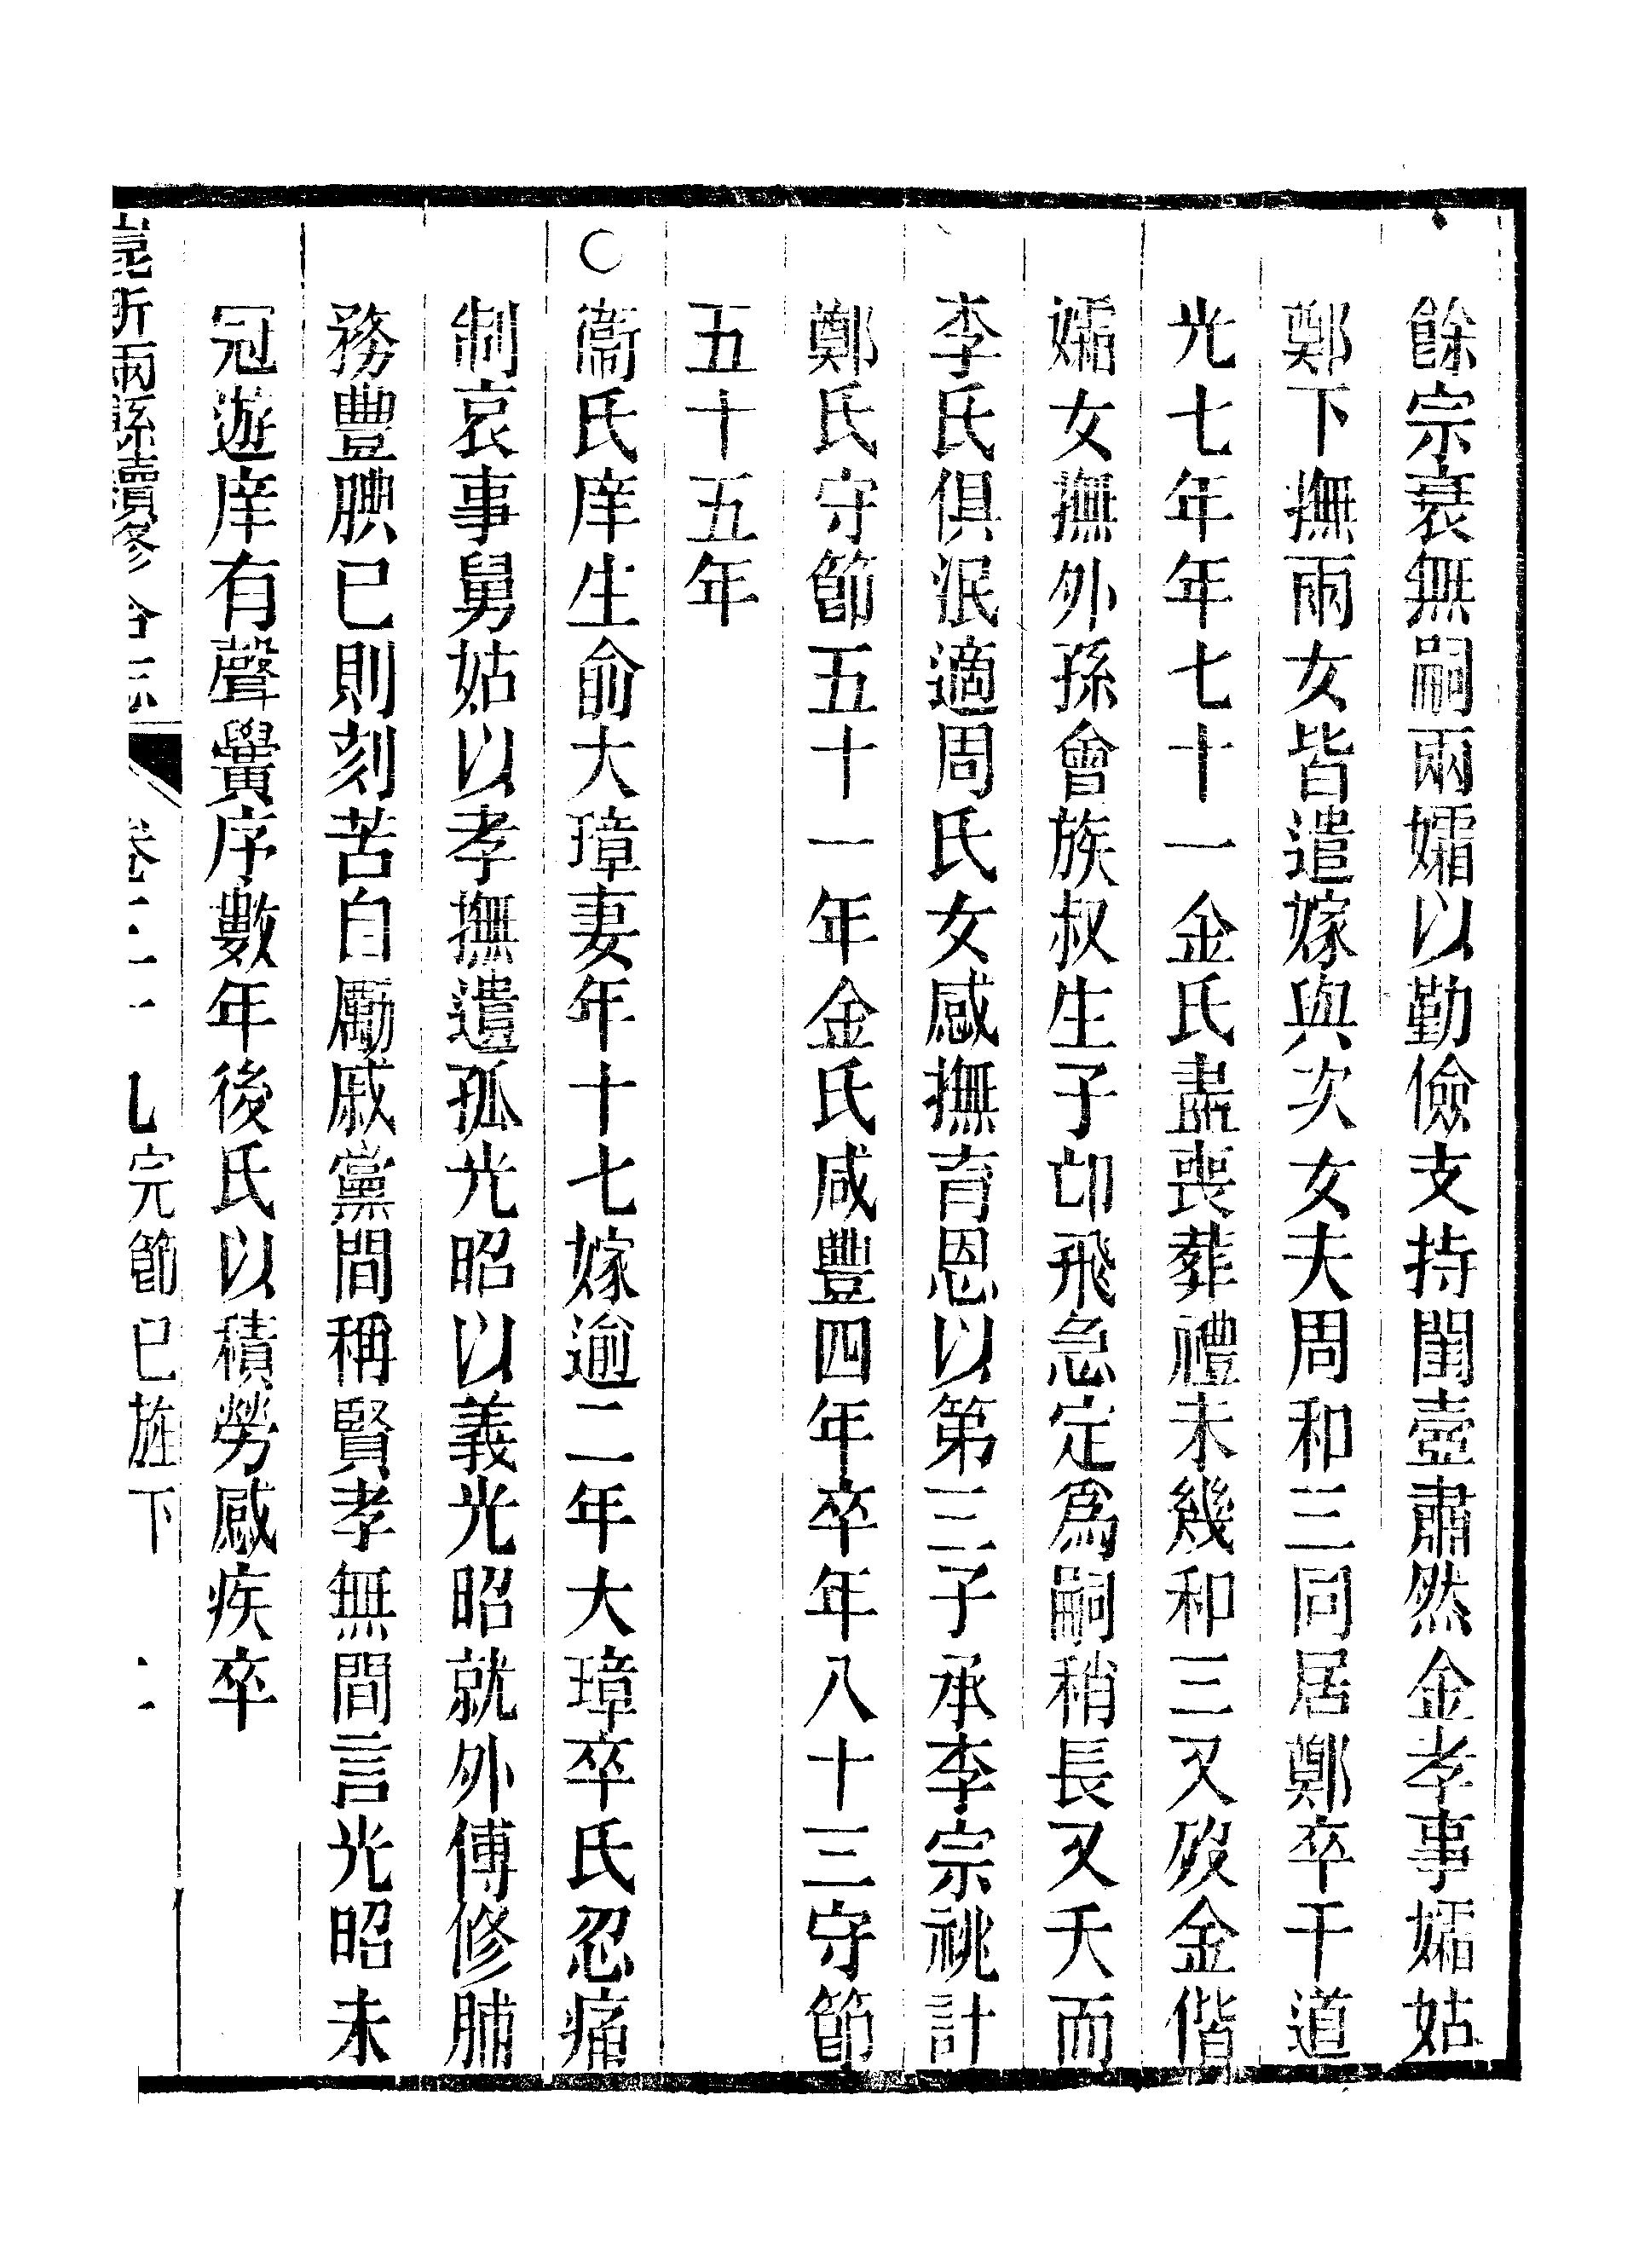 餘宗衰無嗣兩孀以勤儉支持閨壼肅然金孝事孀姑
鄭下撫兩女皆遣嫁與次女夫周和三同居鄭卒于道
光七年年七十一金氏盡喪葬禮未幾和三又歿金偕
孀女撫外孫會族叔生子卬飛急定爲嗣稍長又夭而
李氏俱泯適周氏女感撫育恩以第三子承李宗祧計
鄭氏守節五十一年金氏咸豐四年卒年八十三守節
五十五年
○衞氏庠生俞大璋妻年十七嫁逾二年大璋卒氏忍痛
制哀事舅姑以孝撫遺孤光昭以義光昭就外傅修脯
務豐腆已則刻苦自勵戚黨間稱賢孝無間言光昭未
冠遊庠有聲黌序數年後氏以積勞感疾卒
崑新兩縣續修合志 卷三十 完節已旌下